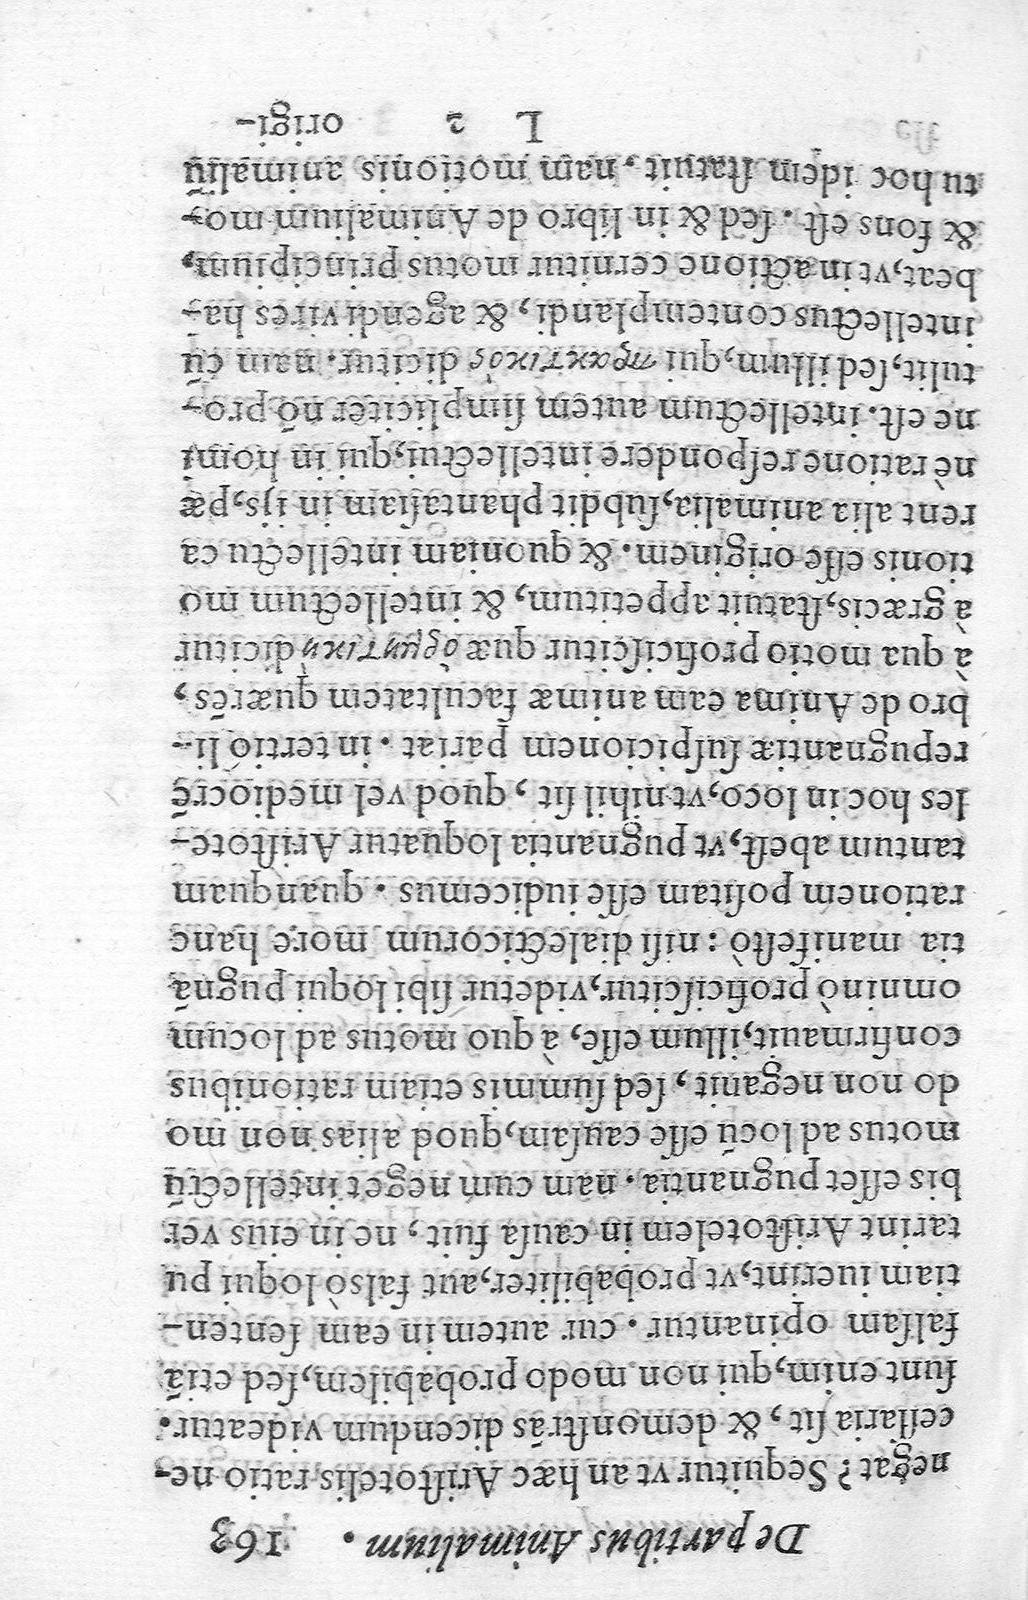 De partibus Animalium. 163
negat? Sequitur vt an hæc Ariſtotelis ratio ne-
ceſſaria ſit, & demonſtrãs dicendum videatur.
ſunt enim, qui non modo probabilem, ſed etiã
falſam opinantur. cur autem in eam ſenten-
tiam iuerint, vt probabiliter, aut falsò loqui pu
tarint Ariſtotelem in cauſa fuit, ne in eius ver
bis eſſet pugnantia. nam cum neget intellectũ
motus ad locũ eſſe cauſam, quod alias non mo
do non negauit, ſed ſummis etiam rationibus
confirmauit, illum eſſe, à quo motus ad locum
omninò proficiſcitur, videtur ſibi loqui pugnã
tia manifeſtò: niſi dialecticorum more hanc
rationem poſitam eſſe iudicemus. quanquam
tantum abeſt, vt pugnantia loquatur Ariſtote-
les hoc in loco, vt nihil ſit, quod vel mediocrẽ
repugnantiæ ſuſpicionem pariat. in tertio li-
bro de Anima eam animæ facultatem quærẽs,
à qua motio proficiſcitur quæ ὁρμητικὴ dicitur
à græcis, ſtatuit appetitum, & intellectum mo
tionis eſſe originem. & quoniam intellectu ca
rent alia animalia, ſubdit phantaſiam in ijs, pæ
nè ratione reſpondere intellectui, qui in homi
ne eſt. intellectum autem ſimpliciter nõ pro-
tulit, ſed illum, qui πρακτικὸς dicitur. nam cũ
intellectus contemplandi, & agendi vires ha-
beat, vt in actione cernitur motus principium,
& fons eſt. ſed & in libro de Animalium mo-
tu hoc idem ſtatuit, nam motionis animaliũ
L 2 origi-